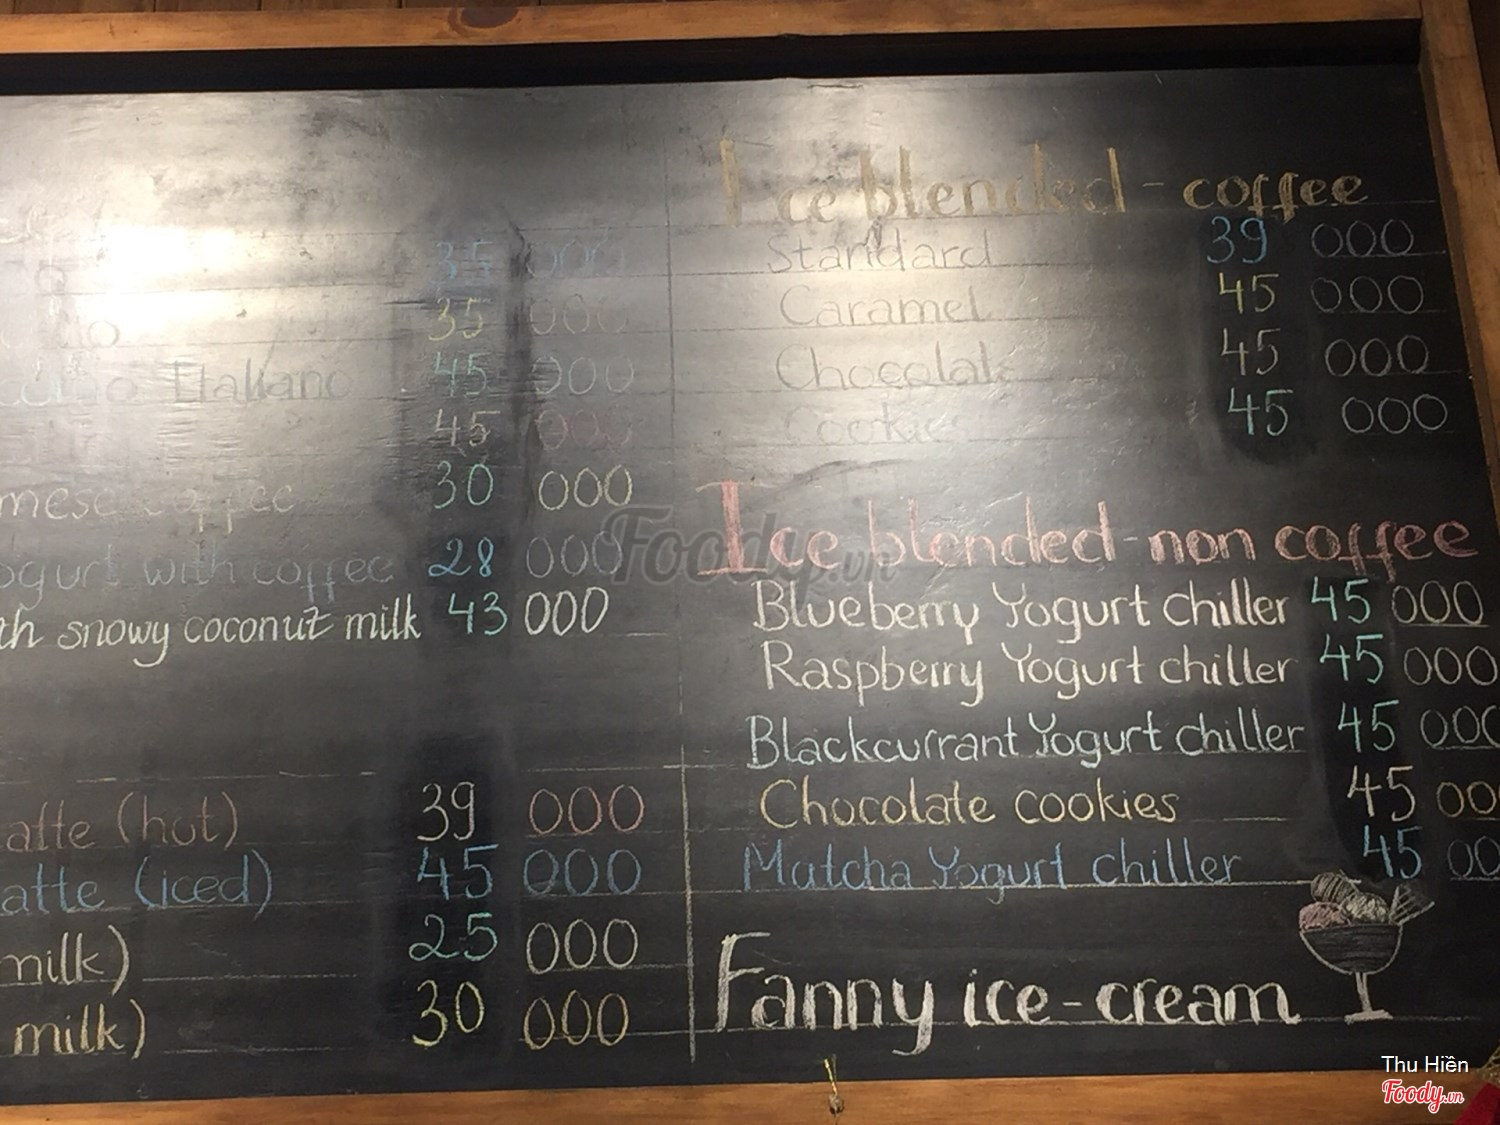 35 000
35 000
Italiano 45 000
45 000
coffee 30 000
with coffee 28 000
snowy coconut milk 43 000
(hot) 39 000
(iced) 45 000
milk) 25 000
milk) 30 000
Ice blended - coffee
Standard 39 000
Caramel 45 000
Chocolate 45 000
Cookies 45 000
Ice blended - non coffee
Blueberry Yogurt chiller 45 000
Raspberry Yogurt chiller 45 000
Blackcurrant Yogurt chiller 45 000
Chocolate cookies 45 000
Matcha Yogurt chiller 45 00
Fanny ice-cream
Foody.vn
Thu Hiền
Foody.vn